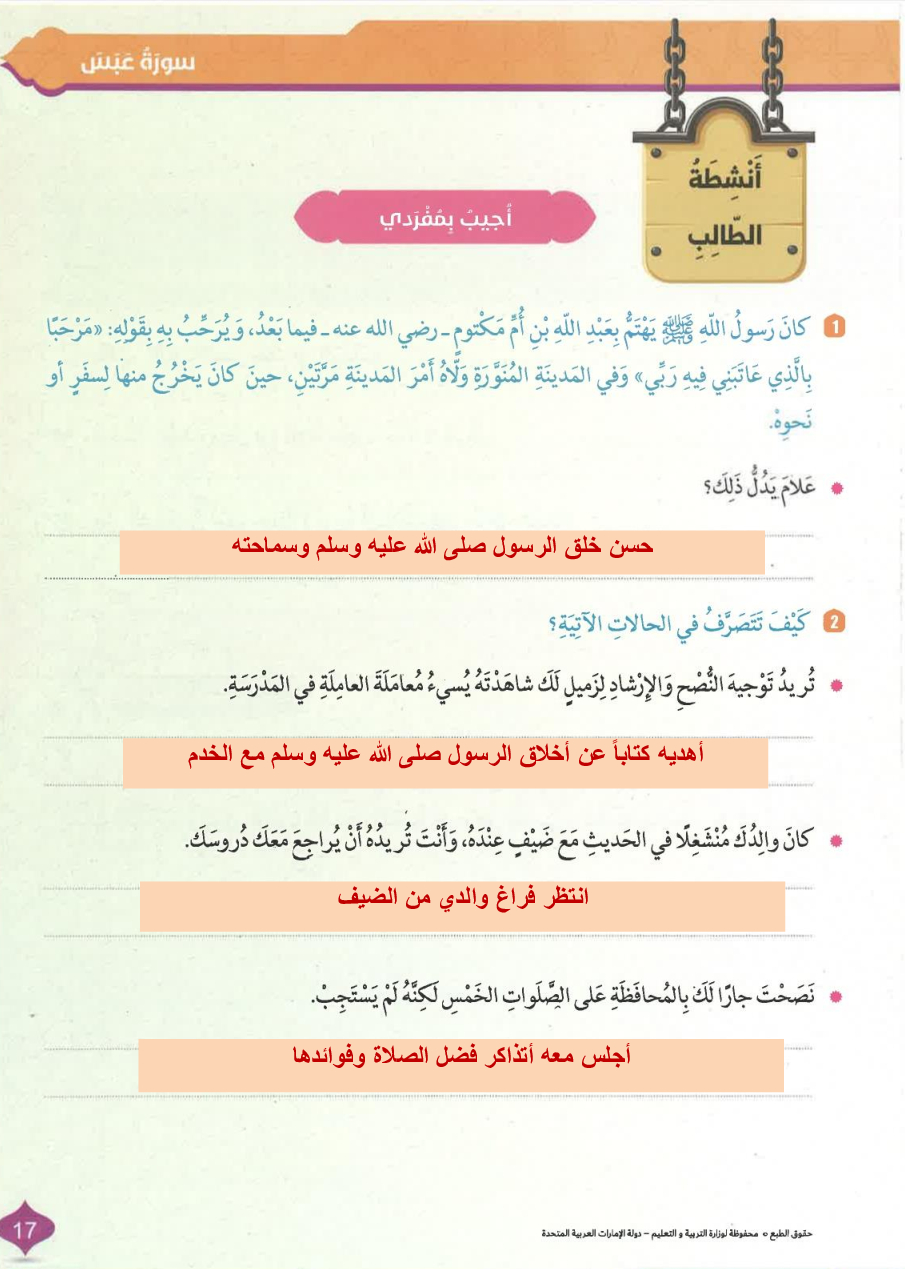 سورَةُ عَبَسَ
أَنْشِطَةُ
الطّالِبِ
أُجيبُ بِمُفْرَدي
1 كانَ رَسولُ اللّهِ ﷺ يَهْتَمُّ بِعَبْدِ اللّهِ بْنِ أُمِّ مَكْتومٍ ـ رضي الله عنه ـ فيما بَعْدُ، وَيُرَحِّبُ بِهِ بِقَوْلِهِ: «مَرْحَبًا
بِالَّذِي عَاتَبَنِي فِيهِ رَبِّي» وَفي المَدينَةِ المُنَوَّرَةِ وَلّاهُ أَمْرَ المَدينَةِ مَرَّتَيْنِ، حينَ كانَ يَخْرُجُ منها لِسفَرٍ أو
نَحوِهْ.
عَلامَ يَدُلُّ ذَلِكَ؟
حسن خلق الرسول صلى الله عليه وسلم وسماحته
2 كَيْفَ تَتَصَرَّفُ في الحالاتِ الآتِيَةِ؟
تُريدُ تَوْجيهَ النُّصْحِ وَالإِرْشادِ لِزَميلٍ لَكَ شاهَدْتَهُ يُسيءُ مُعامَلَةَ العامِلَةِ في المَدْرَسَةِ.
أهديه كتاباً عن أخلاق الرسول صلى الله عليه وسلم مع الخدم
كانَ والِدُكَ مُنْشَغِلًا في الحَديثِ مَعَ ضَيْفٍ عِنْدَهُ، وَأَنْتَ تُريدُهُ أَنْ يُراجِعَ مَعَكَ دُروسَكَ.
انتظر فراغ والدي من الضيف
نَصَحْتَ جارًا لَكَ بِالمُحافَظَةِ عَلى الصَّلَواتِ الخَمْسِ لَكِنَّهُ لَمْ يَسْتَجِبْ.
أجلس معه أتذاكر فضل الصلاة وفوائدها
حقوق الطبع © محفوظة لوزارة التربية و التعليم – دولة الإمارات العربية المتحدة
17